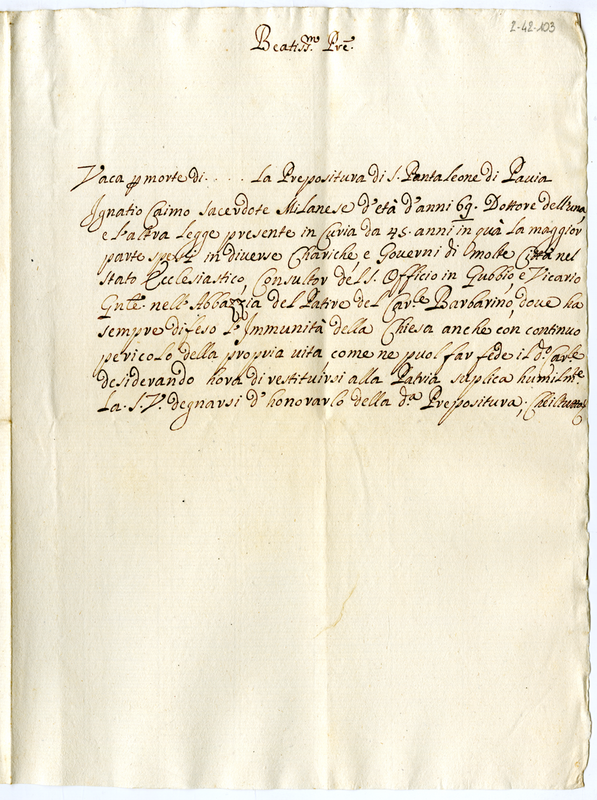 2-42-103
Beatiss.mo Pre.
Vaca p morte di . . . . . La Prepositura di S. Pantaleone di Pavia
Ignatio Caimo sacerdote Milanese d'età d'anni 69. Dottore dell'una
e l'altra Legge presente in Curia da 45. anni in quà la maggior
parte spesi in diverse Chariche e Governi di molte Città nel
stato Ecclesiastico, Consultor del S. Officio in Gubbio, e Vicario
Gnle. nell'Abbazzia del Patire del Car.le Barbarino, dove ha
sempre difeso l'Immunità della Chiesa anche con continuo
pericolo della propria vita come ne puol far fede il d.o Car.le
desiderando hora di restituirsi alla Patria suplica humilm.te
La. S. V. degnarsi d'honorarlo della d.a Prepositura; Che il tutto